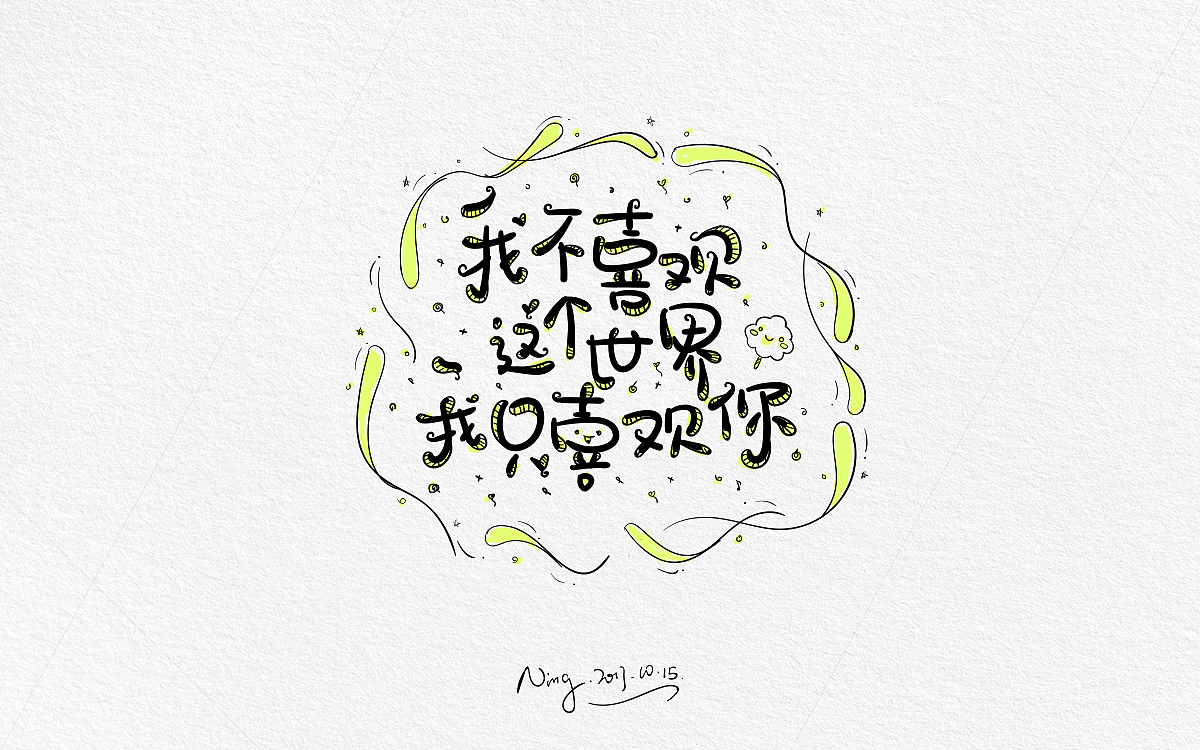 我不喜欢
这个世界
我只喜欢你
Ning.2017.10.15.